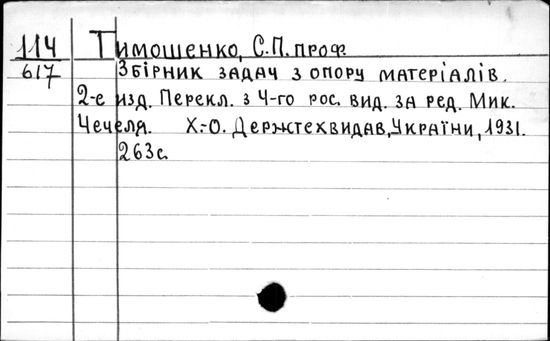 114 Тимошенко, С.П. проф.
617 Збірник задач з опору матеріалів.
2-е изд. Перекл. з 4-го рос. вид. за ред. Мик.
Чечеля. Х.-О. Держтехвидав,України, 1931.
263с.